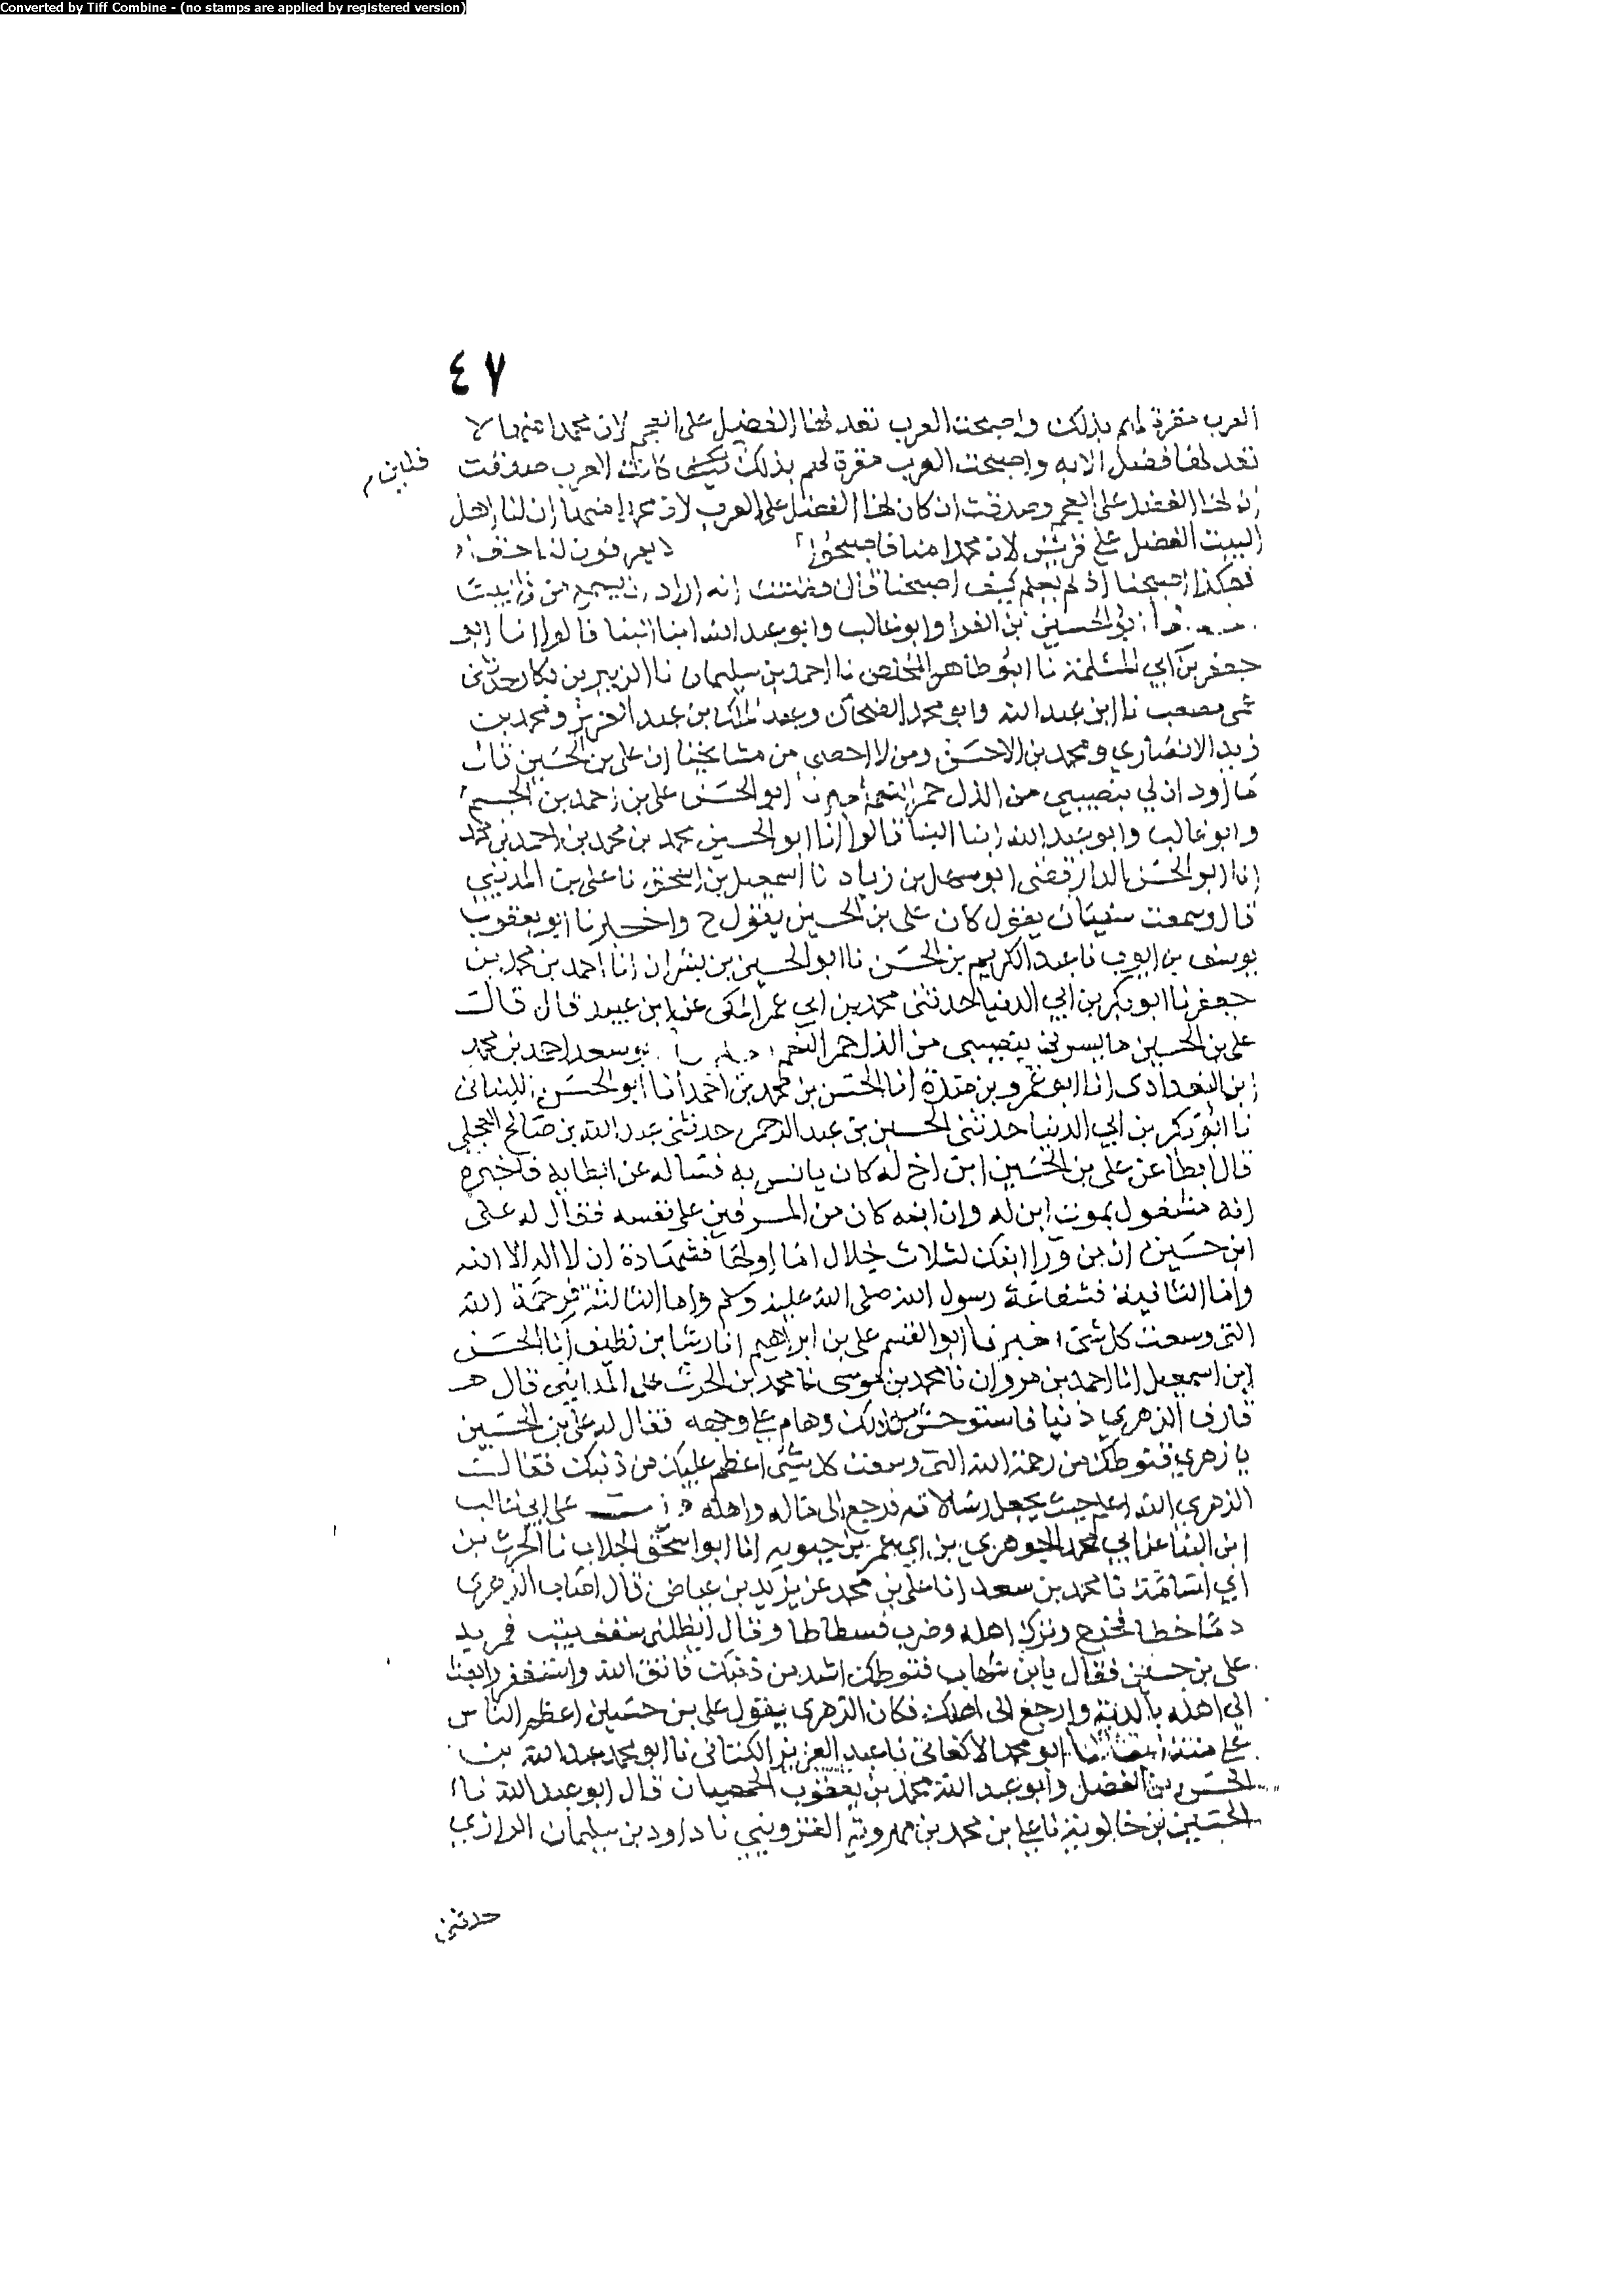 Converted by Tiff Combine - (no stamps are applied by registered version)
٤٧
العرب مقرة لهم بذلك واصبحت العرب تعد لها الفضل على العجم لان محمدا منها لا
تعد لها فضل الا به واصبحت العجم مقرة لهم بذلك كانت العرب صدقت
فلين م
ان لها الفضل على العجم وصدقت ان كان لها الفضل على العرب لان محمدا منها ان لنا اهل
البيت الفضل على قريش لان محمدا منا فاصبحوا يعرفون لنا
فهكذا اصبحنا اذ لم يعلم كيف اصبحنا قال فظننت انه اراد ان يسمع من في البيت
ابو الحسين بن الفرا وابو غالب وابو عبد الله ابنا البنا قالوا انا ابو
جعفر بن ابي المسلمة نا ابو طاهر المخلص نا احمد بن سليمان نا الزبير بن بكار حدثني
عمي مصعب نا ابن عبد الله وابو محمد الضحاك وعبد الملك بن عبد العزيز ومحمد بن
زيد الانصاري ومحمد بن ومن لا احصى من مشايخنا ان على بن الحسين قال
ما اود ان لي بنصيبي من الذل حمر النعم اخبرنا ابو الحسن على بن احمد بن الحسن
وابو غالب وابو عبد الله ابنا البنا قالوا انا ابو الحسين محمد بن محمد بن احمد بن محمد
انا ابو الحسن الدارقطني ابو سهل بن زياد نا اسمعيل بن اسحق نا على بن المديني
قال وسمعت سفيان يقول كان على بن الحسين يقول ح واخبرنا ابو يعقوب
يوسف بن ايوب نا عبد الكريم بن الحسن نا ابو الحسين بن بشران انا احمد بن محمد بن
جعفر نا ابو بكر بن ابي الدنيا حدثني محمد بن ابي عمر المكي عن ابن عبيد قال قال
على بن الحسين ما يسرني بنصيبي من الذل حمر النعم ابو سعد احمد بن محمد
ابن البغدادى انا ابو عمرو بن مندة انا الحسن بن محمد بن احمد انا ابو الحسن اللبناني
نا ابو بكر بن ابي الدنيا حدثني الحسين بن عبد الرحمن حدثني عبد الله بن صالح العجلي
قال ابطا عن على بن الحسين ابن اخ له كان يانس به فساله عن ابطايه فاخبره
انه مشغول بموت ابن له وان ابنه كان من المسرفين على نفسه فقال له على
ابن حسين ان من ورا ابنك لثلاث خلال اما اولها فشهادة ان لا اله الا الله
واما الثانية فشفاعة رسول الله صلى الله عليه وسلم واما الثالثة فرحمة الله
التى وسعت كل شئ اخبرنا ابو القسم على بن ابراهيم انا رشا بن نظيف انا الحسن
ابن اسمعيل انا احمد بن مروان نا محمد بن موسى نا محمد بن الحرث على المدايني قال
قارف الزهري ذنبا فاستوحش من ذلك وهام على وجهه فقال له على بن الحسين
يا زهري قنوطك من رحمة الله التى وسعت كل شئ اعظم عليك من ذنبك فقال
الزهرى الله اعلم حيث يجعل رسالاته فرجع الى ماله واهله على ابي غالب
ابن البنا عن ابي محمد الجوهري بن ابي عمر بن حيويه انا ابو اسحق الجلاب نا الحرث بن
ابي اسامة نا محمد بن سعد انا على بن محمد عن يزيد بن عياض قال اصاب الزهرى
دما خطا فخرج وترك اهله وضرب فسطاطا وقال لا يظلني سقف بيت فمر به
على بن حسين فقال يابن شهاب قنوطك اشد من ذنبك فاتق الله واستغفره وابعث
الى اهله بالدية وارجع الى اهلك فكان الزهرى يقول على بن حسين اعظم الناس
على منة ابو محمد الاكفاني نا عبد العزيز الكتاني نا ابو محمد عبد الله بن
الحسن بن الفضل وابو عبد الله محمد بن يعقوب الحمصيان قال ابو عبد الله نا
الحسين بن خالويه نا على بن محمد بن مهرويه القزويني نا داود بن سليمان الرازي
حدثني